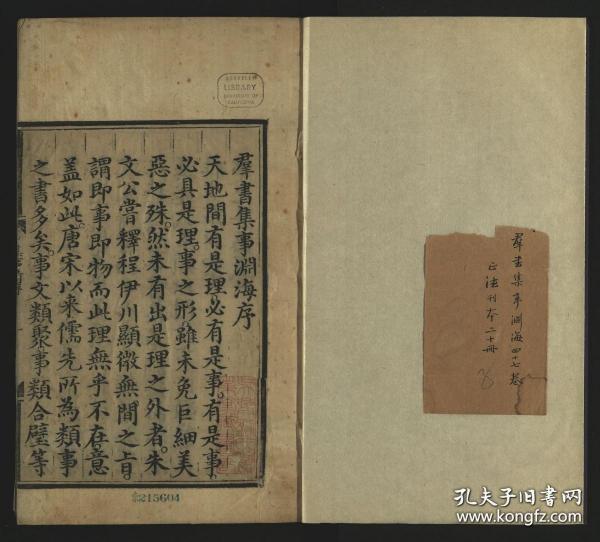 羣書集事淵海序
天地間有是理必有是事。有是事
必具是理。事之形雖未免巨細美
惡之殊。然未有出是理之外者。朱
文公嘗釋程伊川顯微無間之旨。
謂即事即物而此理無乎不在。意
盖如此。唐宋以來儒先所為類事
之書多矣。事文類聚事類合璧等
LIBRARY
UNIVERSITY OF
CALIFORNIA
215604
羣書集事淵海四十七卷
正德刊本二十冊
孔夫子旧书网
www.kongfz.com